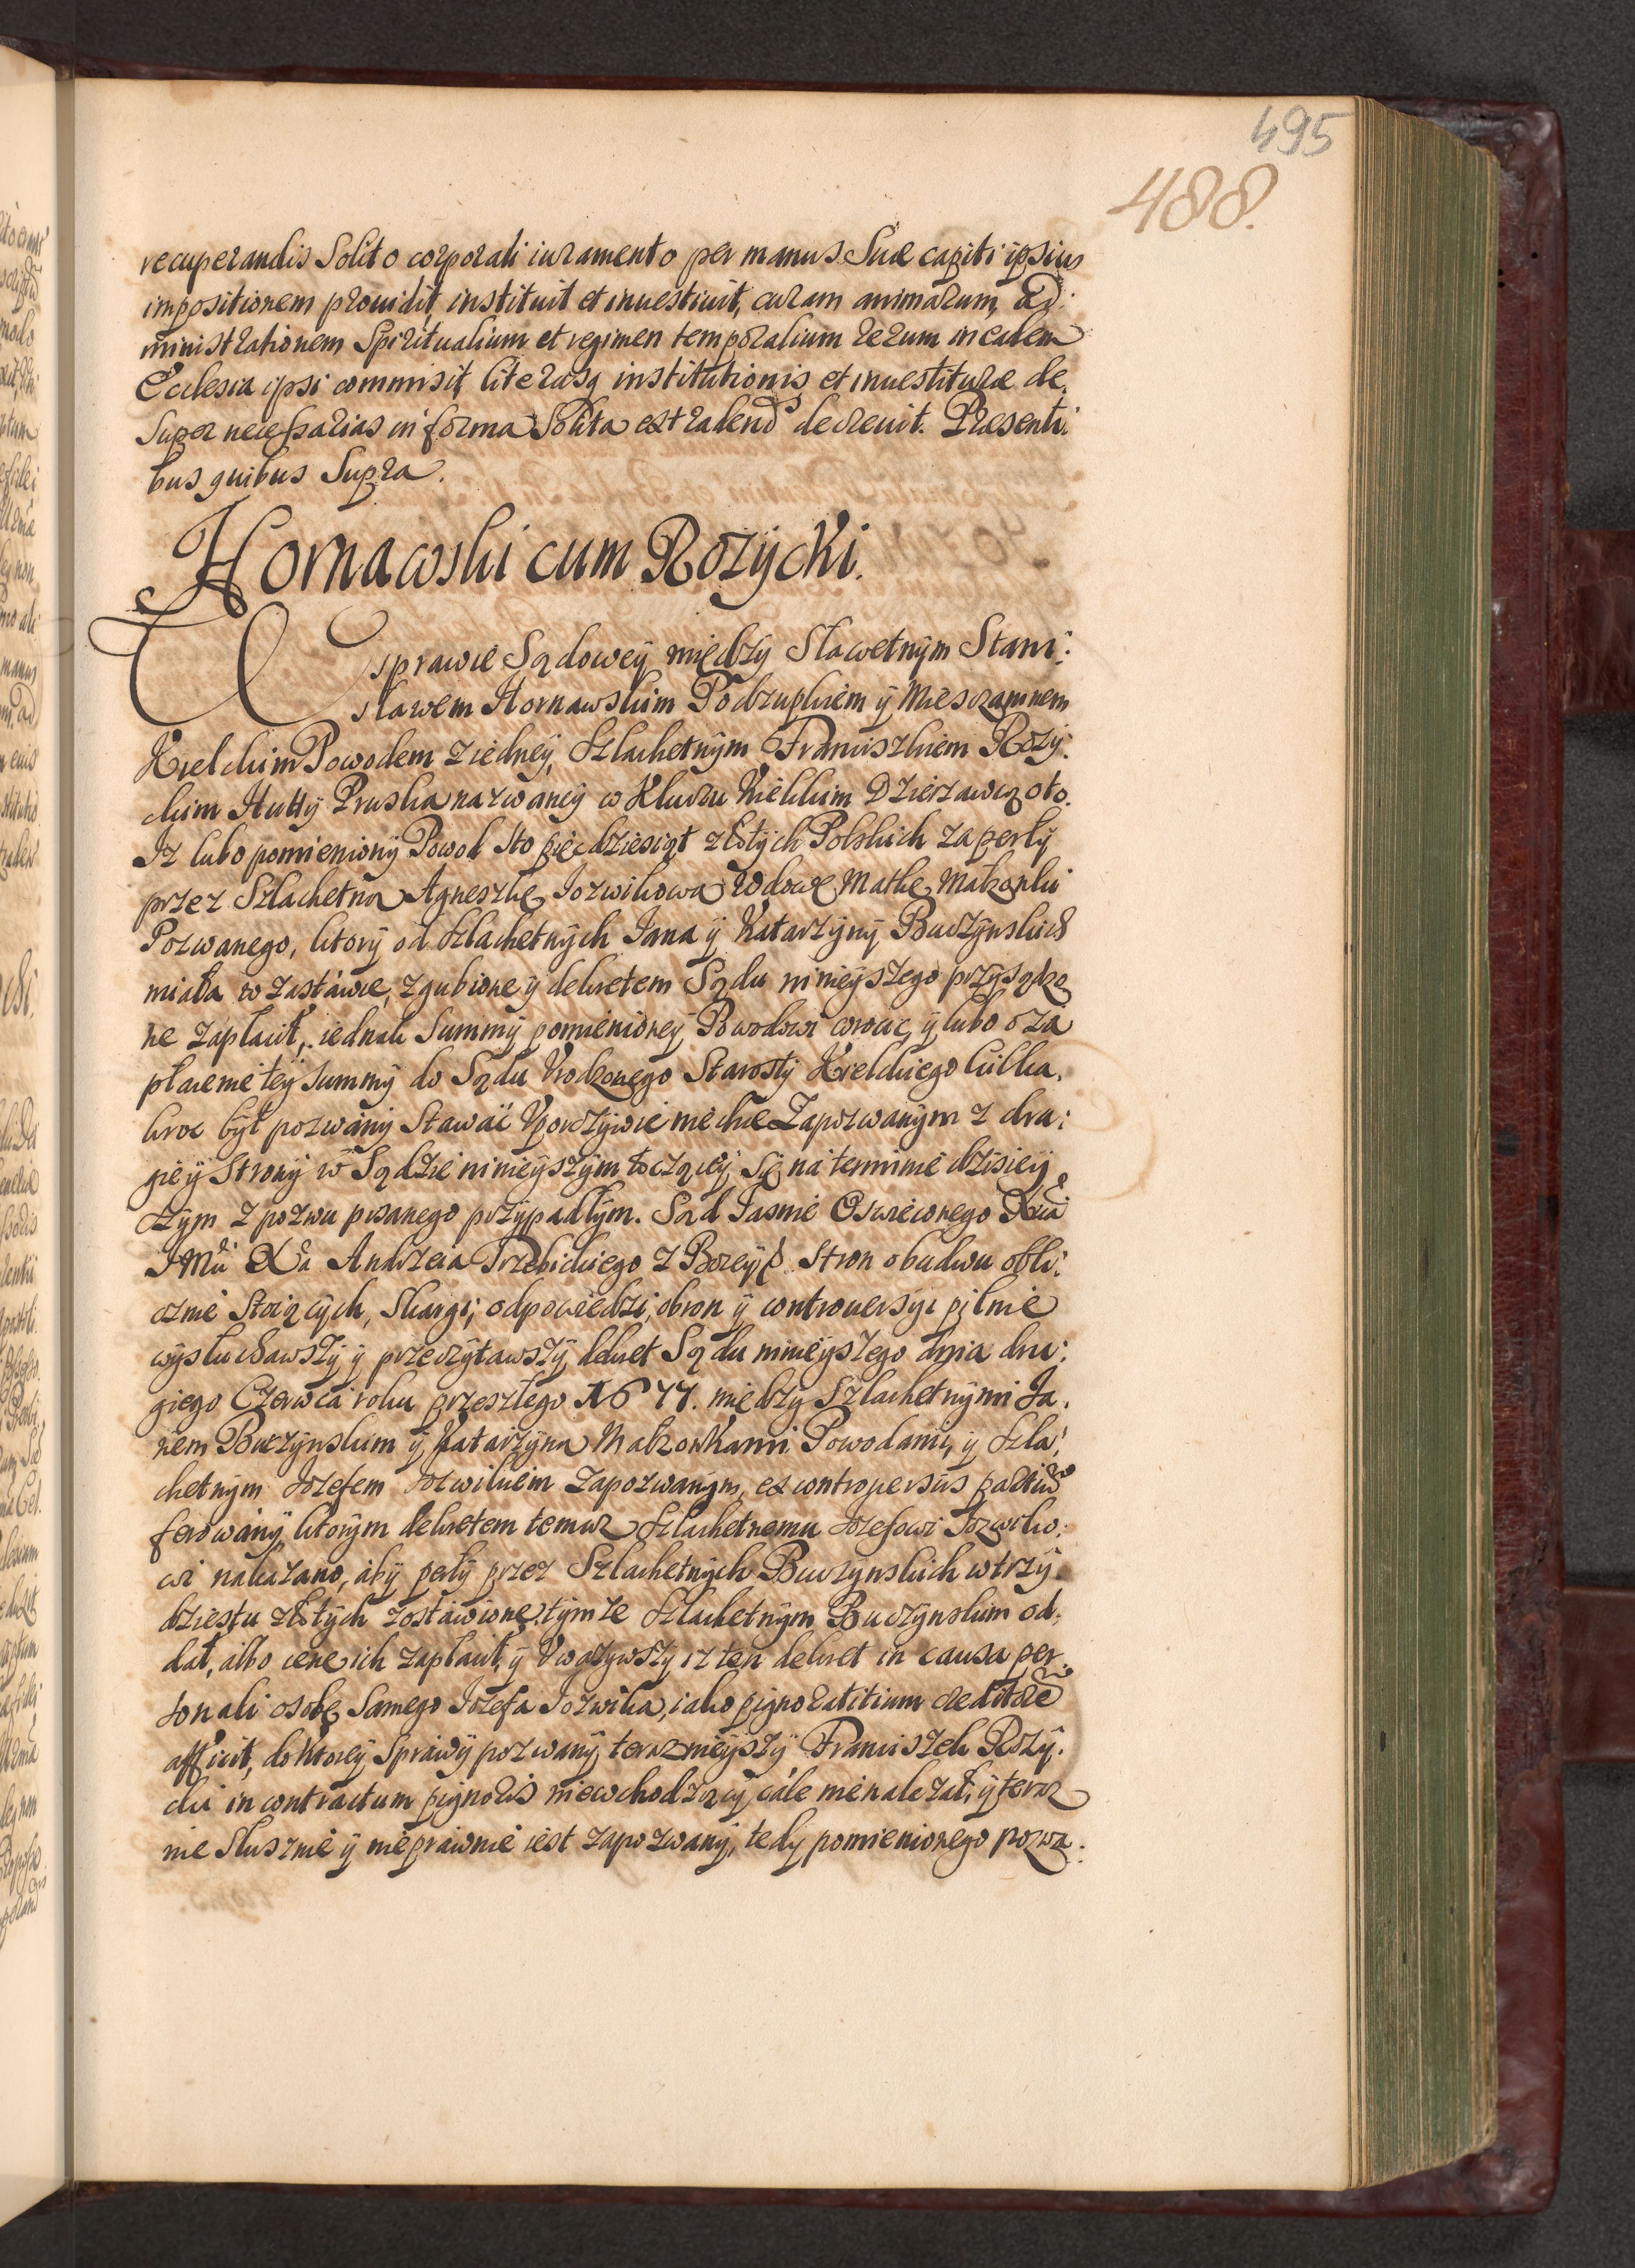 495
488.
recuperandis Solito corporali iuramento per manus Suæ capiti ipsius
impositionem prouidit, instituit et inuestiuit, curam animarum, ad:
ministrationem Spiritualium et regimen temporalium rerum in eadem
Ecclesia ipsi commisit literasq institutionis et inuestituræ de,
Super necessarias in forma Solita extradend decreuit. Præsenti:
bus quibus Supra.
Hornawski cum Rozÿcki.
W sprawie Sądoweÿ między Sławetnÿm Stani:
sławem Hornawskim Podzupkiem ÿ Miesczaninem
Kielckim Powodem z iedneÿ, Szlachetnÿm Franciszkiem Rozÿ:
ckim Huttÿ Pruska nazwaneÿ w Kluczu Kielckim Dzierzawcą oto.
Iz lubo pomienionÿ Powod sto pięcdziesiąt złotÿch Polskich za perłÿ
przez Szlachetną Agneszkę Iozwikową Wdowę Matkę Małzonki
Pozwanego, ktorÿ od Szlachetnÿch Iana ÿ Katarzÿnÿ Buczÿnskich
miała w zastawie, zgubione ÿ dekretem Sądu ninieÿszego przÿsądzo
ne zapłacił, iednak Summÿ pomienioneÿ Powodowi wrocic, ÿ lubo o za
płacenie teÿ summÿ do Sądu Vrodzonego Starostÿ Kielckiego kilka,
kroc bÿł pozwanÿ Stawać Vporczÿwie niechce Zapozwanÿm z dru:
gieÿ Stronÿ w Sądzie ninieÿszÿm toczącej Się na terminie dzisieÿ
szÿm z pozwu pisanego przÿpadłÿm. Sąd Iasnie Oswieconego Xcia
IMci Xa Andrzeia Trzebickiego z Bozeÿ Stron obudwu obli:
cznie Stoiącÿch, Skargi, odpowiedzi, obron ÿ controuersÿi pilnie
wÿsłuchawszÿ ÿ przeczÿtawszÿ dekret Sądu ninieÿszego dnia dru:
giego Czerwca roku przeszłego 1677. między Szlachetnÿmi Ia,
nem Buczÿnskim ÿ Katarzÿną Małzonkami Powodami, ÿ Szla:
chetnÿm Iozefem Iozwikiem Zapozwanÿm, ex controuersiis partiū
ferowanÿ, ktorÿm dekretem temuz Szlachetnemu Iozefowi Iozwiko:
wi nakazano, abÿ perłÿ przez Szlachetnÿch Buczÿnskich w trzÿ
dziestu złotÿch zostawione, tÿmze Szlachetnÿm Buczÿnskim od,
dał, albo cenę ich zapłacił, ÿ Vwazÿwszÿ iz ten dekret in causa per,
sonali osobę Samego Iozefa Iozwika, iako pignoratitium creditorē
afficit, do ktoreÿ Sprawÿ pozwanÿ teraznieÿszÿ Franciszek Rozÿ,
cki in contractum pignoris niewchodzącÿ, cale nienalezał, ÿ teraz
nie Słusznie ÿ nieprawnie iest zapozwanÿ, tedÿ pomienionego pozwa: